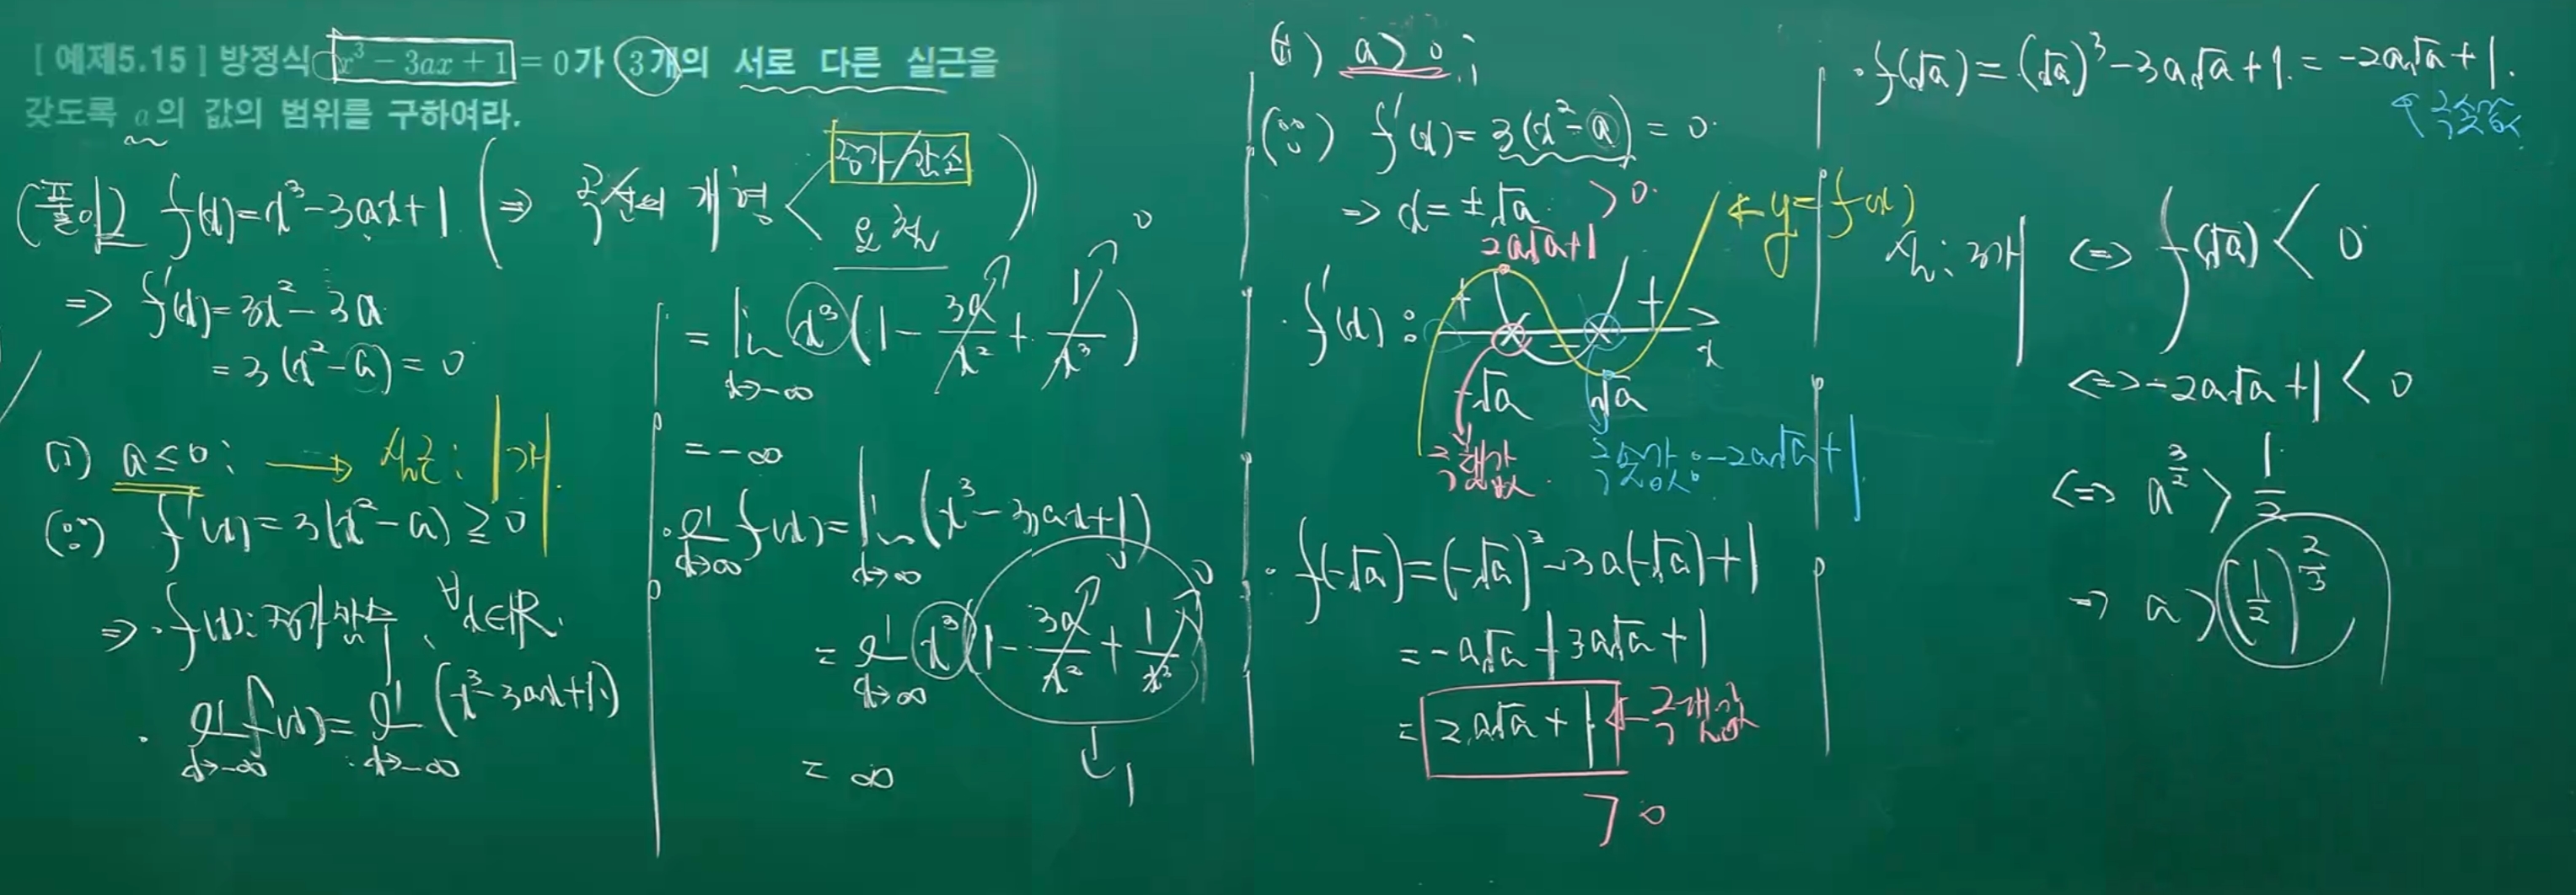 [ 예제5.15 ] 방정식 x³ - 3ax + 1 = 0가 3개의 서로 다른 실근을
갖도록 a의 값의 범위를 구하여라.
(풀이) f(x)=x³-3ax+1 (⇒ 곡선의 개형 < 증가/감소
요철 )
⇒ f'(x)=3x²-3a
=3(x²-a)=0
(i) a≤0; → 실근: 1개.
(∵) f'(x)=3(x²-a)≥0
⇒ · f(x): 증가함수, ∀x∈ℝ.
· lim x→-∞ f(x) = lim x→-∞ (x³-3ax+1)
= lim x→-∞ x³(1 - 3a/x² + 1/x³)
0 0
= -∞
· lim x→∞ f(x) = lim x→∞ (x³-3ax+1)
= lim x→∞ x³(1 - 3a/x² + 1/x³)
0 0
↳ 1
= ∞
(ii) a>0;
(∵) f'(x)=3(x²-a)=0
⇒ x=±√a
2a√a+1 > 0
← y=f(x)
· f'(x): + - + x
-√a √a
극댓값 극솟값: -2a√a+1
· f(-√a)=(-√a)³-3a(-√a)+1
=-a√a+3a√a+1
= 2a√a+1 ← 극댓값
> 0
· f(√a)=(√a)³-3a√a+1 = -2a√a+1.
↑ 극솟값
실근: 3개 ⇔ f(√a) < 0
⇔ -2a√a+1 < 0
⇔ a^(3/2) > 1/2
⇒ a > (1/2)^(2/3)